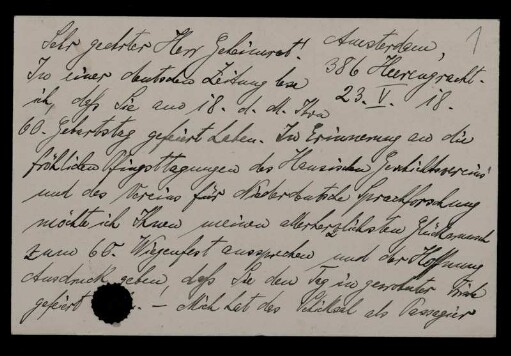 Sehr geehrter Herr Geheimrat!
Amsterdam,
386 Heerengracht.
23. V. 18.
1
In einer deutschen Zeitung lese
ich, daß Sie am 18. d. M. Ihren
60. Geburtstag gefeiert haben. In Erinnerung an die
fröhlichen Pfingsttagungen des Hansischen Geschichtsvereins
und des Vereins für Niederdeutsche Sprachforschung
möchte ich Ihnen meinen allerherzlichsten Glückwunsch
zum 60. Wiegenfest aussprechen und der Hoffnung
Ausdruck geben, daß Sie den Tag in gewohnter
gefeiert — Mich hat das Schicksal als Passagier